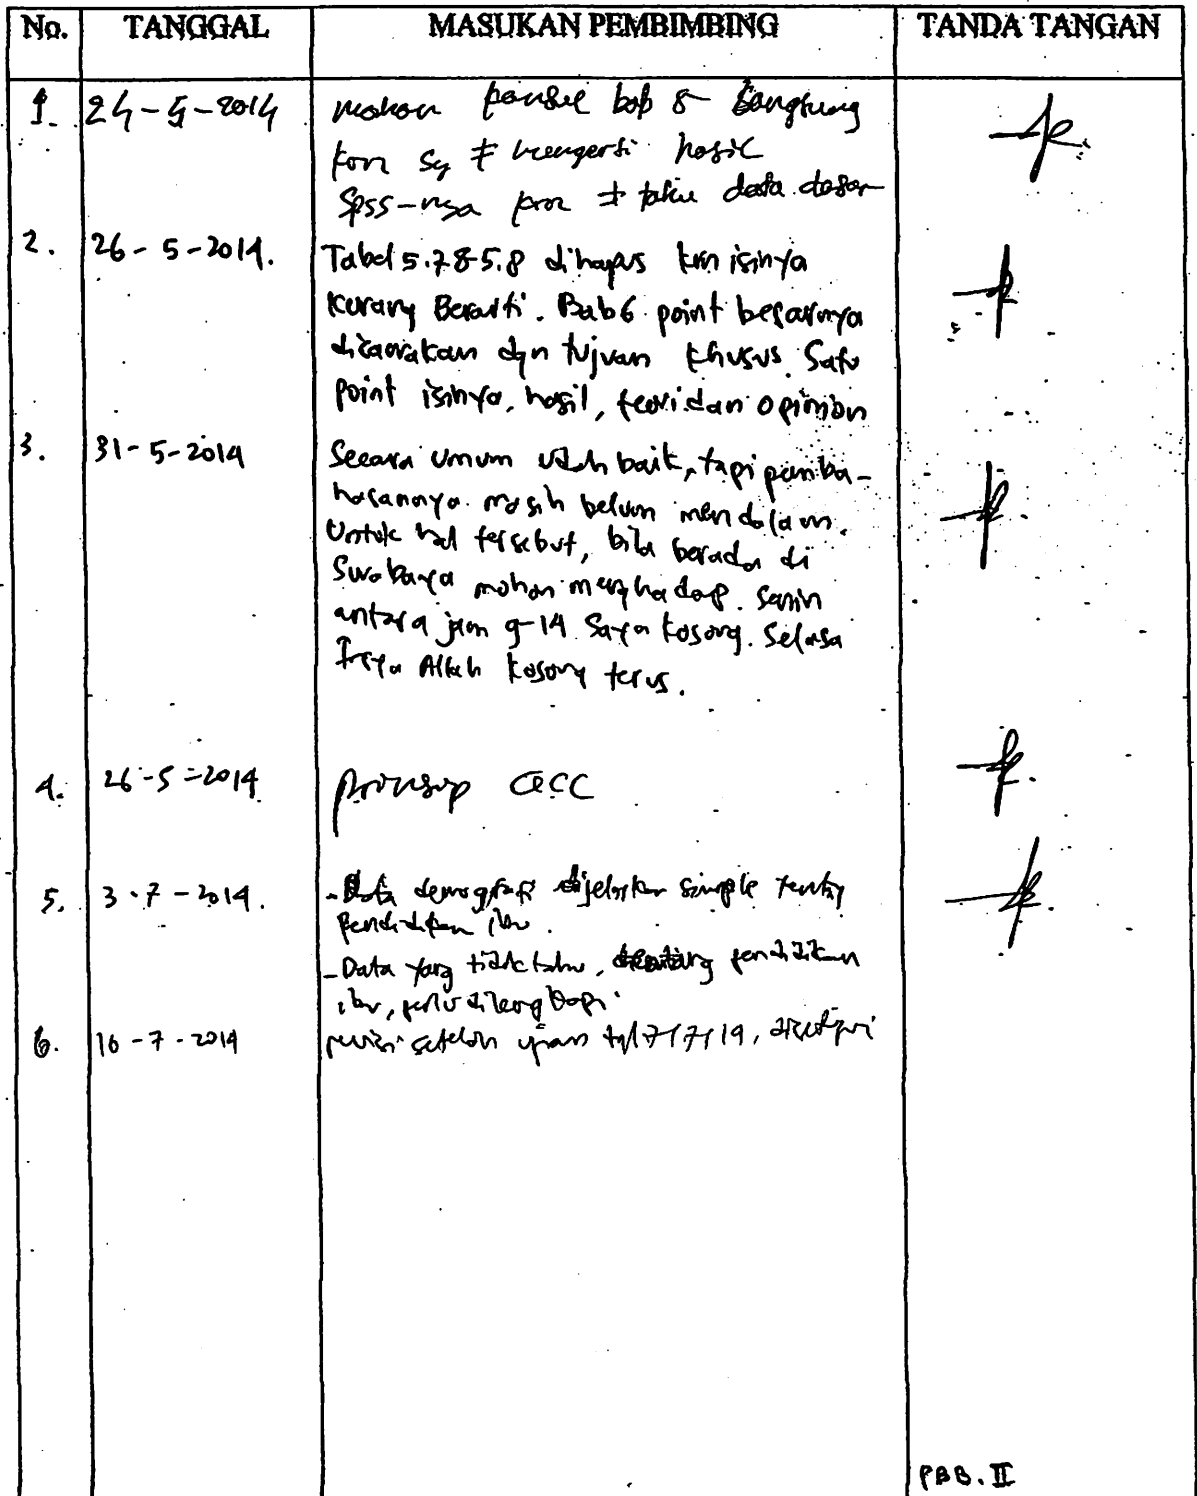 No. TANGGAL MASUKAN PEMBIMBING TANDA TANGAN
1. 24-5-2014 mohon konsul bab 5 langsung
krn sy ≠ mengerti hasil
SPSS-nya krn ≠ tahu data dasar
2. 26-5-2014. Tabel 5.7&5.8 dihapus krn isinya
kurang Berarti. Bab 6 point besarnya
disamakan dgn tujuan khusus. Satu
point isinya, hasil, teori dan opinion
3. 31-5-2014 Secara umum udah baik, tapi pemba-
hasannya masih belum mendalam.
Untuk hal tersebut, bila berada di
Surabaya mohon menghadap. Senin
antara jam 9-14 Saya kosong. Selasa
Insya Allah kosong terus.
4. 26-5-2014 prinsip acc
5. 3-7-2014. - Data demografi dijelaskan simple tentang
Pendidikan ibu.
- Data yang tidak tahu, tentang pendidikan
ibu, perlu dilengkapi.
6. 16-7-2014 revisi setelah ujian tgl 7/7/14, disetujui
PBB. II